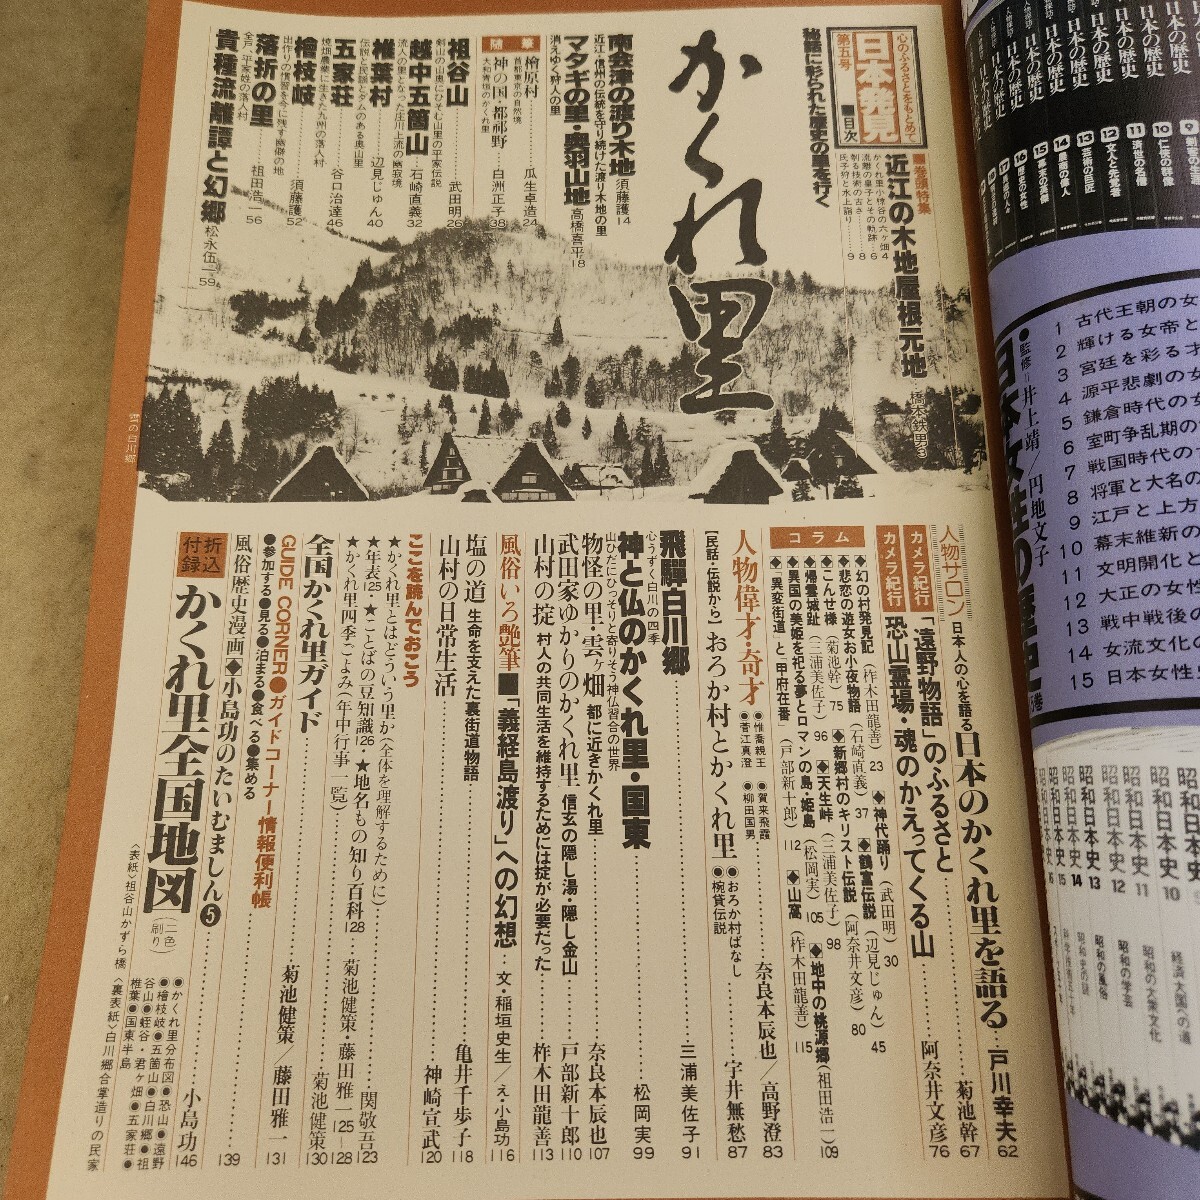 心のふるさとをもとめて
日本発見
第五号
■目次
秘話に彩られた歴史の里を行く
かくれ里
■巻頭特集
近江の木地屋根元地
橋本鉄男3
かくれ里小椋谷の六ヶ畑4
流離の皇子とその軌跡…6
朝る技術の古さ……8
氏子狩と水上詣り……9
南会津の渡り木地 須藤護14
近江・信州の伝統を守り続けた渡り木地の里
マタギの里・奥羽山地 高橋喜平18
消えゆく狩人の里
随筆
檜原村……瓜生卓造24
首都東京の自然境
神の国・都祁野……白洲正子38
大和青垣のかくれ里
祖谷山……武田明26
剣山の山里にひそむ山里の平家伝説
越中五箇山……石崎直義32
流人の里となった庄川上流の幽寂境
椎葉村……辺見じゅん40
伝説と民謡とをみのある奥山里
五家荘……谷口治達46
焼畑農業に生きた九州の落人村
檜枝岐……須藤護52
出作りの慣習を今に残す幽僻の地
落折の里……祖田浩一56
全戸、平家姓の落人村
貴種流離譚と幻郷 松永伍一59
雪の白川郷
人物サロン 日本人の心を語る
日本のかくれ里を語る…戸川幸夫62
カメラ紀行 「遠野物語」のふるさと……菊池幹67
カメラ紀行 恐山霊場・魂のかえってくる山……阿奈井文彦76
コラム
◆幻の村発見記(柞木田龍善)23 ◆神代踊り(武田明)30
◆悲恋の遊女お小夜物語(石崎直義)37 ◆鶴富伝説(辺見じゅん)45
◆こんせ様(菊池幹)75 ◆新郷村のキリスト伝説(阿奈井文彦)80
◆帰雲城趾(三浦美佐子)96 ◆天生峠(三浦美佐子)98 ◆地中の桃源郷(祖田浩一)109
◆異国の美姫を祀る夢とロマンの島・姫島(松岡実)105
◆「異変街道」と甲府在番(戸部新十郎)112 ◆山窩(柞木田龍善)115
人物偉才・奇才 ●惟喬親王 ●賀来飛霞 ●菅江真澄 ●柳田国男……奈良本辰也/高野澄83
[民話・伝説から]おろか村とかくれ里 ●おろか村ばなし ●椀貸伝説……宇井無愁87
飛騨白川郷……三浦美佐子91
心うずく白川の四季
神と仏のかくれ里・国東……松岡実99
山ひだにひっそりと寄りそう神仏習合の世界
物怪の里・雲ヶ畑 都に近きかくれ里……奈良本辰也107
武田家ゆかりのかくれ里 信玄の隠し湯・隠し金山……戸部新十郎110
山村の掟 村人の共同生活を維持するためには掟が必要だった……柞木田龍善113
風俗いろ艶筆■「義経島渡り」への幻想…文・稲垣史生/え・小島功116
塩の道 生命を支えた裏街道物語……亀井千歩子118
山村の日常生活……神崎宣武120
ここを読んでおこう
★かくれ里とはどういう里か(全体を理解するために)……関敬吾123
★年表125・★ことばの豆知識126・★地名もの知り百科128…菊池健策・藤田雅一125〜128
★かくれ里四季ごよみ(年中行事一覧)……菊池健策130
全国かくれ里ガイド……菊池健策/藤田雅一131
GUIDE CORNER●ガイドコーナー情報便利帳
●参加する●見る●泊まる●食べる●集める……139
風俗歴史漫画◆小島功のたいむましん❺……小島功146
折込付録
かくれ里全国地図
(二色刷り)
●かくれ里分布図●恐山●遠野
●檜枝岐●五箇山●白川郷●祖
谷山●蛭谷・君ヶ畑●五家荘●
椎葉●国東半島
〈表紙〉祖谷山かずら橋 〈裏表紙〉白川郷合掌造りの民家
日本の歴史
9
10 仁俠の群像
11 済世の名僧
12 文人と先覚者
13 芸術の巨匠
14
15 幕末の英傑
16
17
日本女性の歴史
●監修=井上靖/円地文子
1 古代王朝の女
2 輝ける女帝と
3 宮廷を彩る才
4 源平悲劇の女
5 鎌倉時代の女
6 室町争乱期の
7 戦国時代の
8 将軍と大名の
9 江戸と上方
10 幕末維新の
11 文明開化と
12 大正の女性
13 戦中戦後の
14 女流文化の
15 日本女性史
昭和日本史
10 経済大国への道
11 昭和の大衆文化
12 昭和の学芸
13 昭和の風俗
14 昭和史の謎
15
16